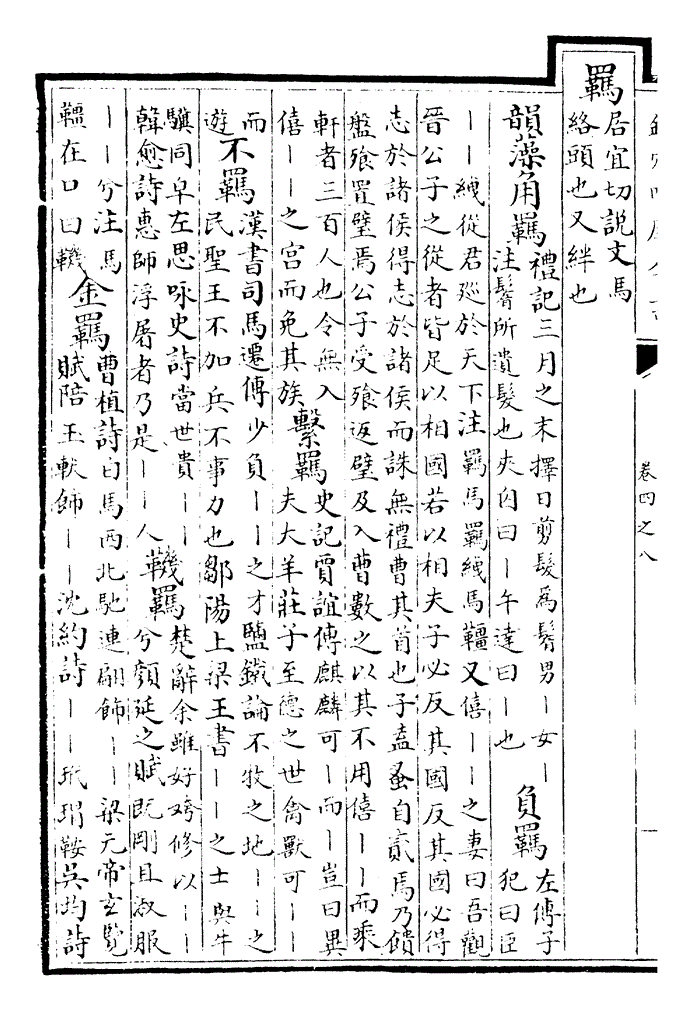 卷四之八
羈
居宜切説文馬
絡頭也又絆也
韻藻角羈
禮記三月之末擇日剪髮爲鬌男丨女丨
注鬌所遺髮也夾囟曰丨午達曰丨也
負羈
左傳子
犯曰臣
丨丨紲從君廵於天下注羈馬羈紲馬韁又僖丨丨之妻曰吾觀
晉公子之從者皆足以相國若以相夫子必反其國反其國必得
志於諸侯得志於諸侯而誅無禮曹其首也子盍蚤自貳焉乃饋
盤飱置璧焉公子受飱返璧及入曹數之以其不用僖丨丨而乘
軒者三百人也令無入
僖丨丨之宫而免其族
繫羈
史記賈誼傳麒麟可丨而丨豈曰異
夫犬羊莊子至德之世禽獸可丨丨
而
遊
不羈
漢書司馬遷傳少負丨丨之才鹽鐵論不牧之地丨丨之
民聖王不加兵不事力也鄒陽上梁王書丨丨之士與牛
驥同皁左思咏史詩當世貴丨丨
韓愈詩惠師浮屠者乃是丨丨人
鞿羈
楚辭余雖好姱修以丨丨
兮顔延之賦既剛且淑服
丨丨兮注馬
韁在口曰鞿
金羈
曹植詩白馬西北馳連翩飾丨丨梁元帝玄覽
賦陪玉軑飾丨丨沈約詩丨丨玳瑁鞍吳均詩